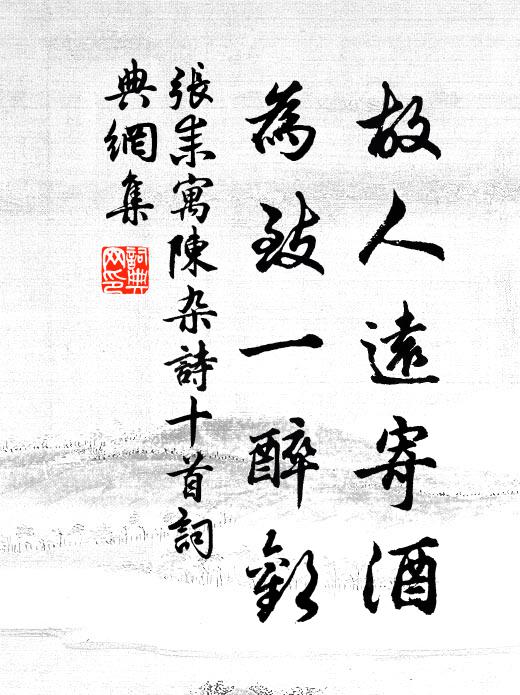 故人遠寄酒
為致一醉歡
張耒寓陳杂詩十首詞
典網集
詞典网印